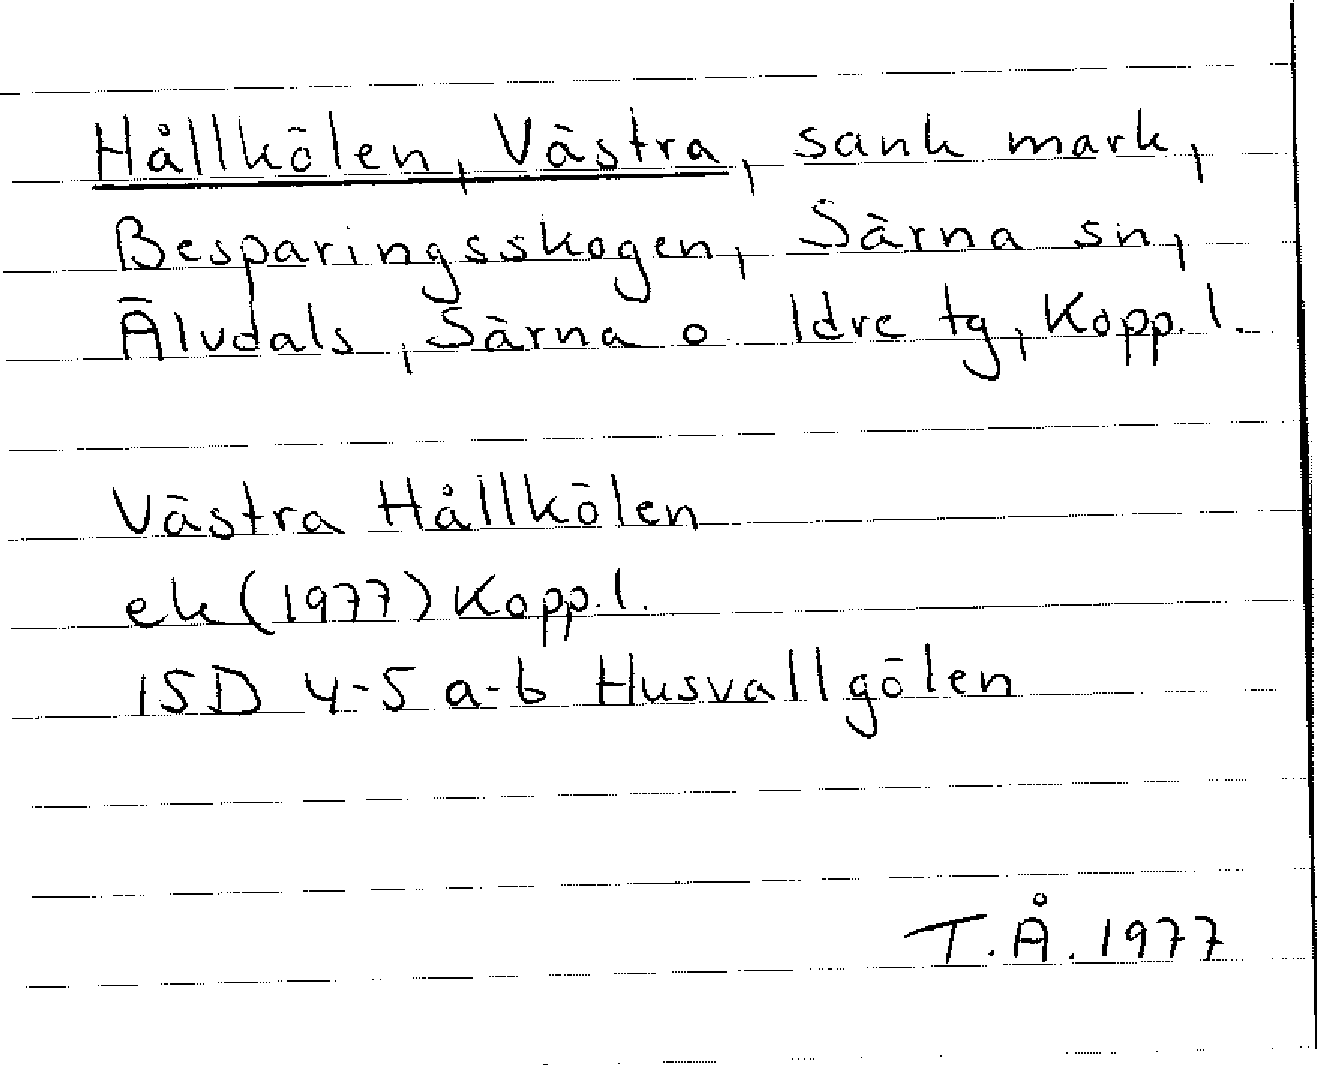 Hållkölen, Västra, sank mark,
Besparingsskogen, Särna sn,
Älvdals, Särna o Idre tg, Kopp. l.
Västra Hållkölen
ek (1977) Kopp. l.
15D 4-5 a-b Husvallgölen
T.Å. 1977